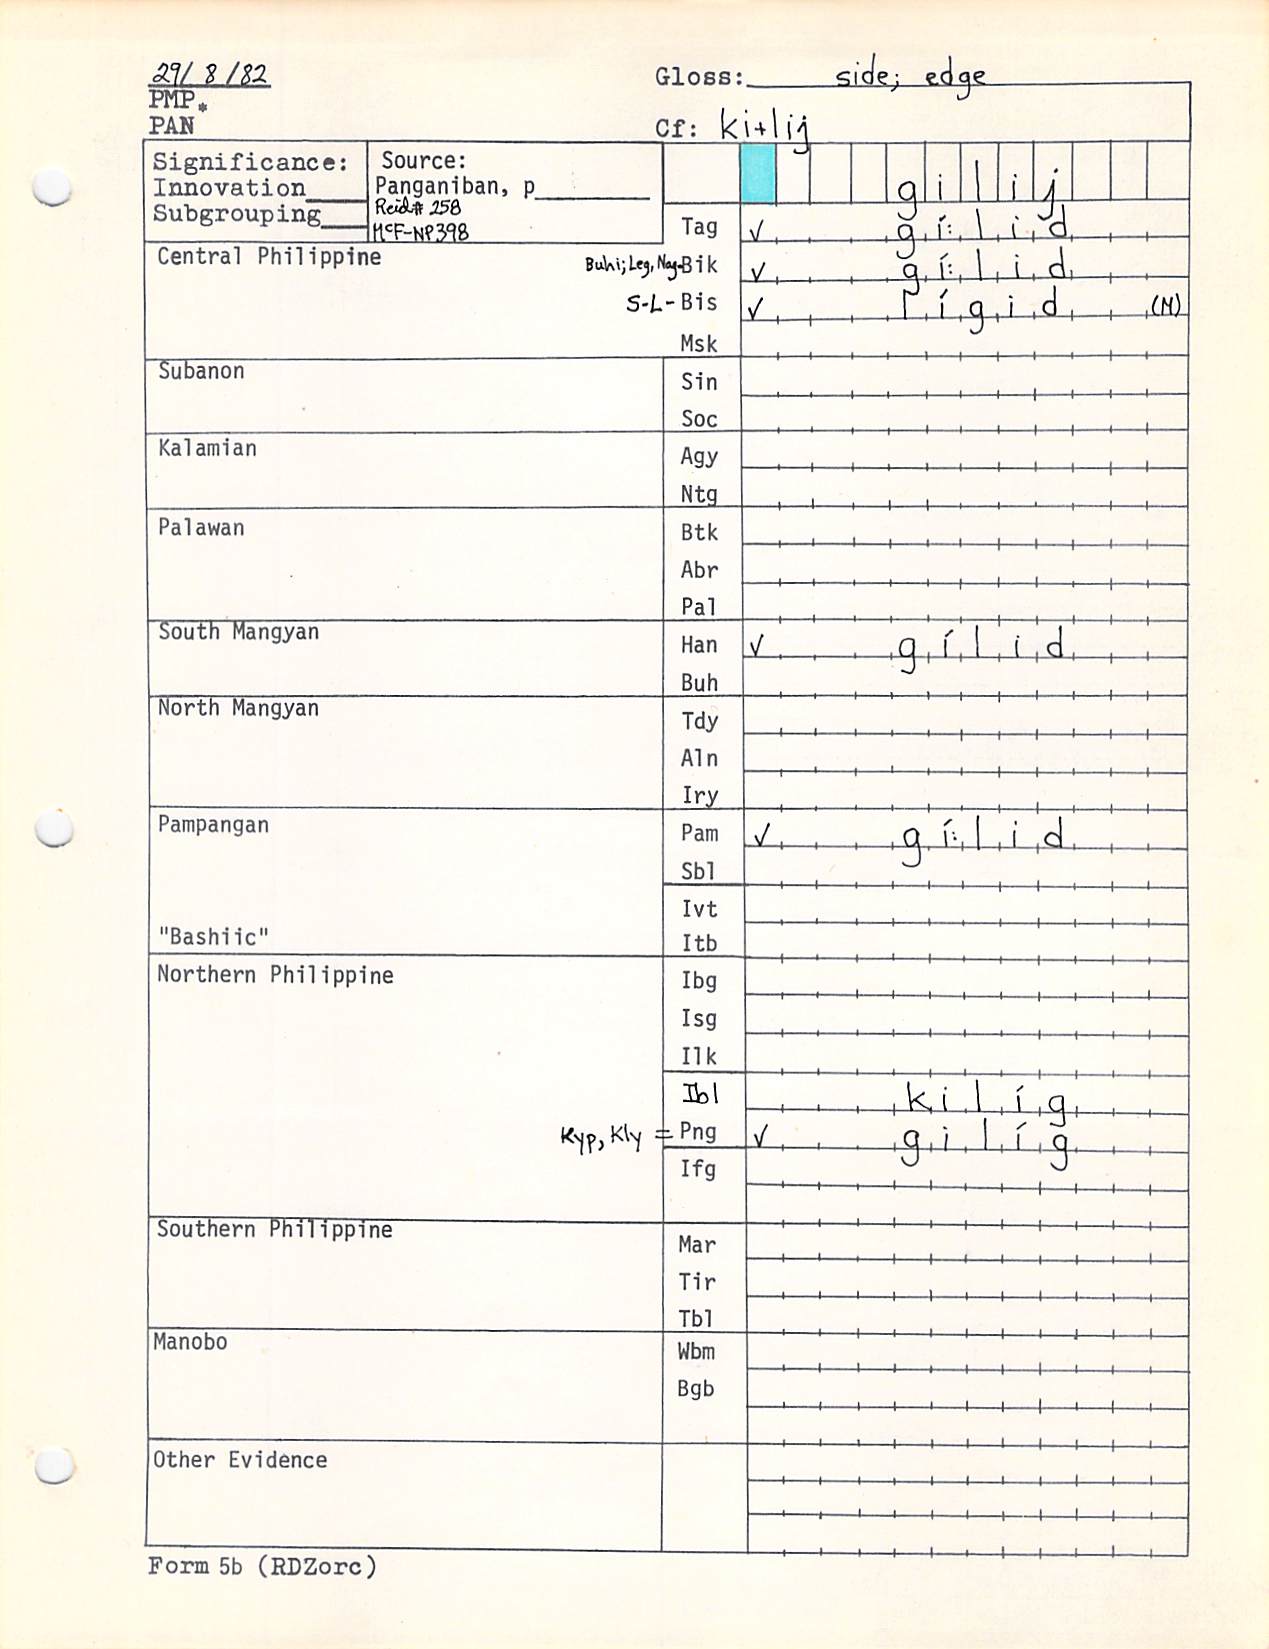 29/ 8 /82
Gloss: side; edge
PMP *
PAN
Cf: ki+lij
Significance:
Innovation
Subgrouping
Source:
Panganiban, p
Reid# 258
McF-NP398
gilij
Tag ✓ gí:lid
Central Philippine
Buhi; Leg, Nag-Bik ✓ gí:lid
S-L-Bis ✓ lígid (M)
Msk
Subanon
Sin
Soc
Kalamian
Agy
Ntg
Palawan
Btk
Abr
Pal
South Mangyan
Han ✓ gílid
Buh
North Mangyan
Tdy
Aln
Iry
Pampangan
Pam ✓ gí:lid
Sbl
Ivt
"Bashiic"
Itb
Northern Philippine
Ibg
Isg
Ilk
Ibl kilíg
Kyp, Kly = Png ✓ gilíg
Ifg
Southern Philippine
Mar
Tir
Tbl
Manobo
Wbm
Bgb
Other Evidence
Form 5b (RDZorc)